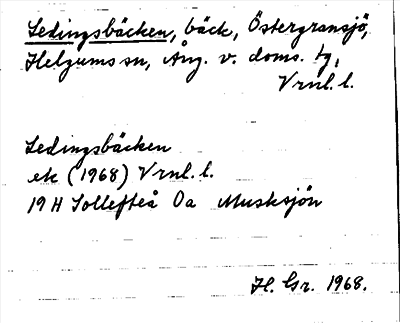 Ledingsbäcken, bäck, Östergransjö,
Helgums sn, Ång. v. doms. tg,
Vrnl. l.
Ledingsbäcken
ek (1968) Vrnl. l.
19 H Sollefteå Oa Musksjön
H. Gr. 1968.